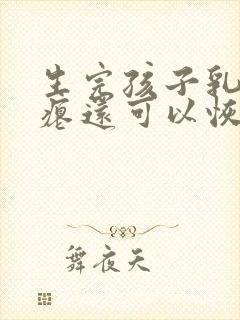 生完孩子乳
瘪还可以恢
舞夜天